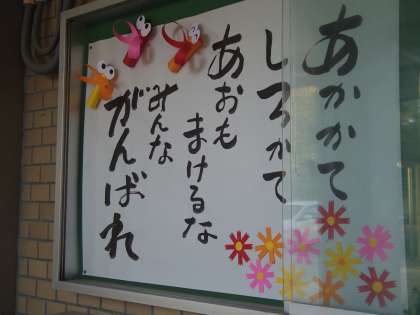 あかかて
しろかて
あおも
まけるな
みんな
がんばれ